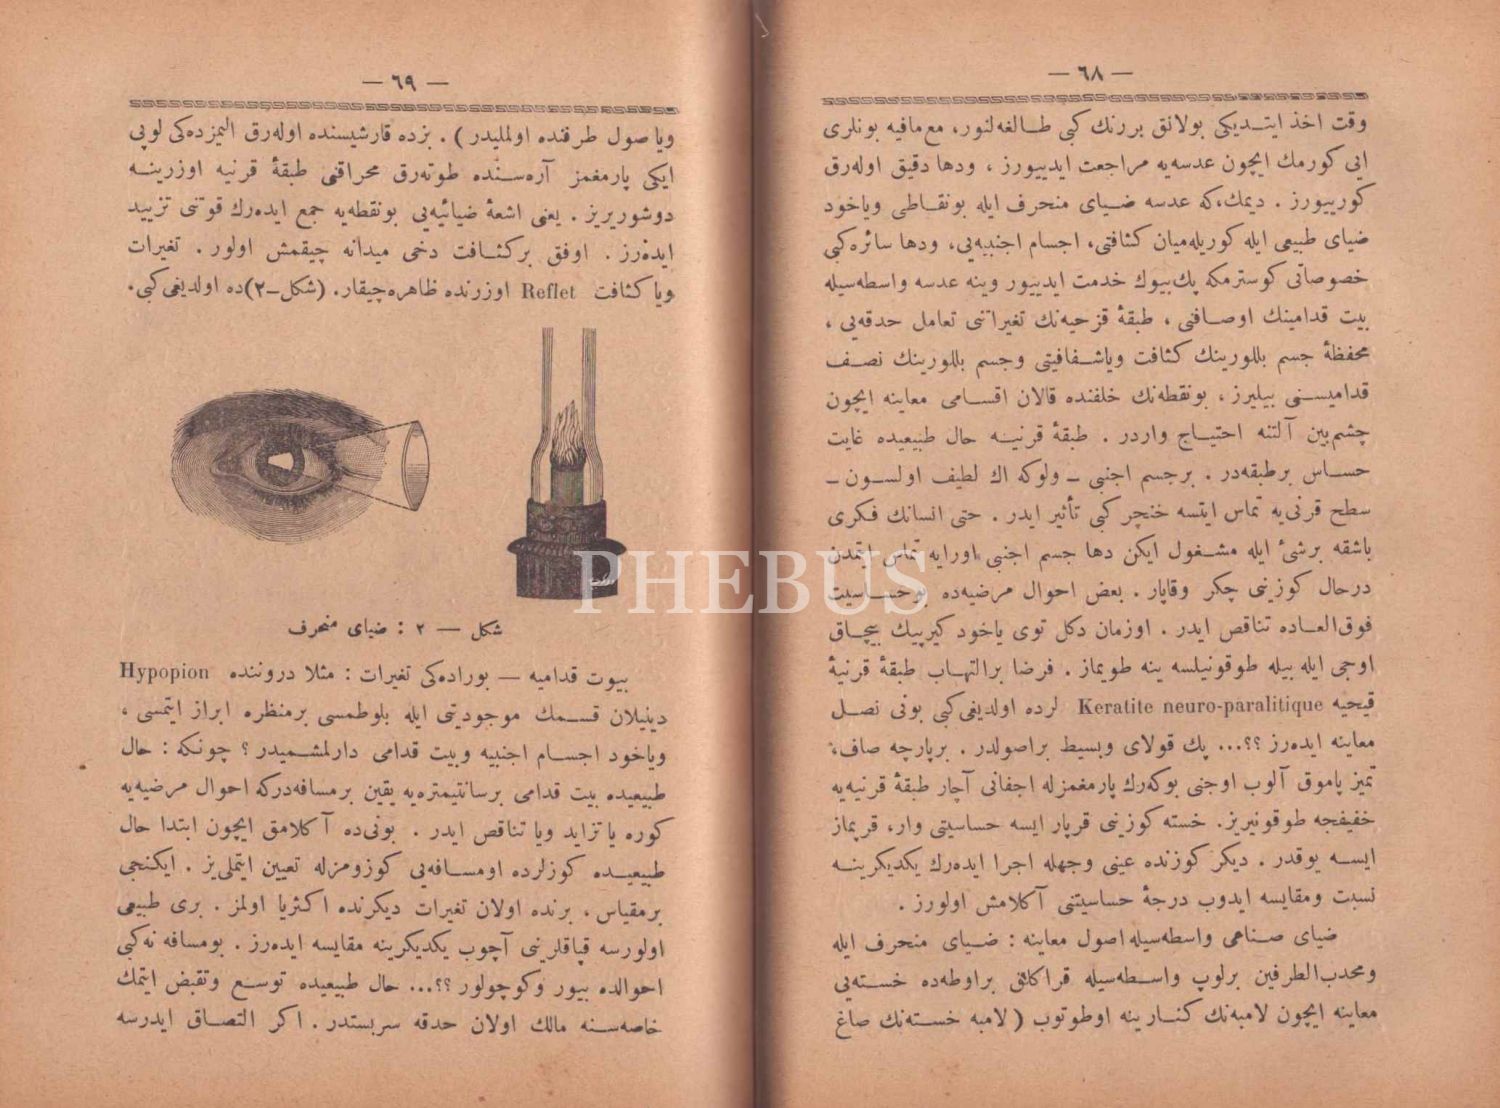 — ٦٨ —
وقت اخذ ایتـدیکی بولانق بررنك کبی طـالغه‌لنور، مع‌مافیه بونلری
ایی کورمك ایچون عدسه‌یه مراجعت ایدییورز ، ودها دقیق اوله‌رق
کورییورز . دیمك،که عدسه ضـیای منحرف ایله بونقـاطی ویاخود
ضیای طبیعی ایله کوریله‌میان کثافتی، اجسام اجنبیه‌یی، ودها سائره‌کبی
خصوصاتی کوسترمکه پك‌بیوك خدمت ایدییور وینه عدسه واسطه‌سیله
بیت قدامینك اوصـافنی ، طبقهٔ قزحیه‌نك تغیراتنی تعامل حدقه‌یی ،
محفظهٔ جسم بللورینك کثافت ویاشـفافیتی وجسم بللورینك نصـف
قدامیسـنی بیلیرز ، بونقطه‌نك خلفنده قالان اقسـامی معاینه ایچون
چشم‌بین آلتنه احتیـاج واردر . طبقهٔ قرنیـه حال طبیعیده غایت
حسـاس برطبقه‌در . برجسم اجنبی ـ ولوکه اك لطیف اولسـون ـ
سطح قرنی‌یه تماس ایتسه خنچر کبی تأثیر ایدر . حتی انسانك فـکری
باشقه برشیٔ ایله مشـغول ایکن دها جسم اجنبی اورایه تماس ایتمدن
درحال کوزینی چکر وقاپار . بعض احوال مرضیه‌ده بوحساسیت
فوق‌العـاده تناقص ایدر . اوزمان دکل توی یاخود کیرپیك بیچـاق
اوجی ایله بیله طوقونیلسه ینه طویماز . فرضا برالتهـاب طبقهٔ قرنیهٔ
قیحیه Keratite neuro-paralitique لرده اولدیغی‌کبی بونی نصـل
معاینه ایده‌رز ؟؟... پك قولای وبسیط براصولدر . برپارچه صاف،
تمیز پاموق آلوب اوجنی بوکه‌رك پارمغمزله اجفانی آچار طبقهٔ قرنیه‌یه
خفیفجه طوقونیریز. خسته کوزینی قرپار ایسه حساسیتی وار، قرپماز
ایسـه یوقدر . دیکر کوزنده عینی وجهله اجرا ایده‌رك یکدیکرینـه
نسبت ومقایسه ایدوب درجهٔ حساسیتنی آکلامش اولورز .
ضیای صـناعی واسطه‌سیله اصول معاینه : ضـیای منحرف ایله
ومحدب‌الطرفین برلوپ واسـطه‌سیله قراکلق براوطه‌ده خسـته‌یی
معاینه ایچون لامبه‌نك کنـارینه اوطوتوب ( لامبه خسته‌نك صاغ
— ٦٩ —
ویاصول طرفنده اولملیدر ) . بزده قارشیسنده اوله‌رق الیمزده‌کی لوپی
ایکی پارمغمز آره‌سـنده طوته‌رق محراقنی طبقهٔ قرنیه اوزرینـه
دوشوریریز . یعنی اشعهٔ ضیائیه‌یی بونقطه‌یه جمع ایده‌رك قوتنی تزیید
ایده‌رز . اوفق برکثـافت دخی میدانه چیقمش اولور . تغیرات
ویاکثافت Reflet اوزرنده ظاهره‌چیقار. (شکل-٢)ده اولدیغی‌کبی.
شکل — ٢ : ضیای منحرف
بیوت قدامیه — بوراده‌کی تغیرات : مثلا دروننده Hypopion
دینیلان قسـمك موجودیتی ایله بلوطمسی برمنظره ابراز ایتمسی ،
ویاخود اجسـام اجنبیه وبیت قدامی دارلمشمیدر ؟ چونکه : حال
طبیعیده بیت قدامی برسانتیمتره‌یه یقین برمسافه‌درکه احوال مرضیه‌یه
کوره یاتزاید ویا تناقص ایدر . بونی‌ده آکلامق ایچون ابتدا حال
طبیعیـده کوزلرده اومسـافه‌یی کوزومزله تعیین ایتملی‌یز . ایکنجی
برمقیاس، برنده اولان تغیرات دیکرنده اکثریا اولمز . بری طبیعی
اولورسه قپاقلرینی آچوب یکدیکرینه مقایسه ایده‌رز . بومسافه نه‌کبی
احوالده بیور وکوچولور ؟؟... حال طبیعیده توسـع وتقبض ایتمك
خاصه‌سنه مالك اولان حدقه سربستدر . اکر التصـاق ایدرسه
PHEBUS